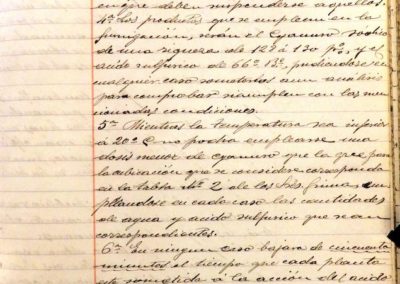 en que deben suspenderse aquellos.
4ª Los productos que se empleen en la
fumigación, serán el Cyanuro sodico
de una riqueza de 128 á 130 pº, y el
acido sulfurico de 66º Bé, pudiendose en
cualquier caso someterlos a un análisis
para comprobar si cumplen con las men
cionadas condiciones.
5ª Mientras la temperatura sea inferior
á 20º C no podrá emplearse una
dosis menor de cyanuro que la que para
la cubicación que se considere corresponda
en la tabla Nº 2 de los Sres. , em
pleandose en cada caso las cantidades
de agua y acido sulfurico que sean
correspondientes.
6ª En ningun caso bajará de cincuenta
minutos el tiempo que cada planta
esté sometida á la acción del acido